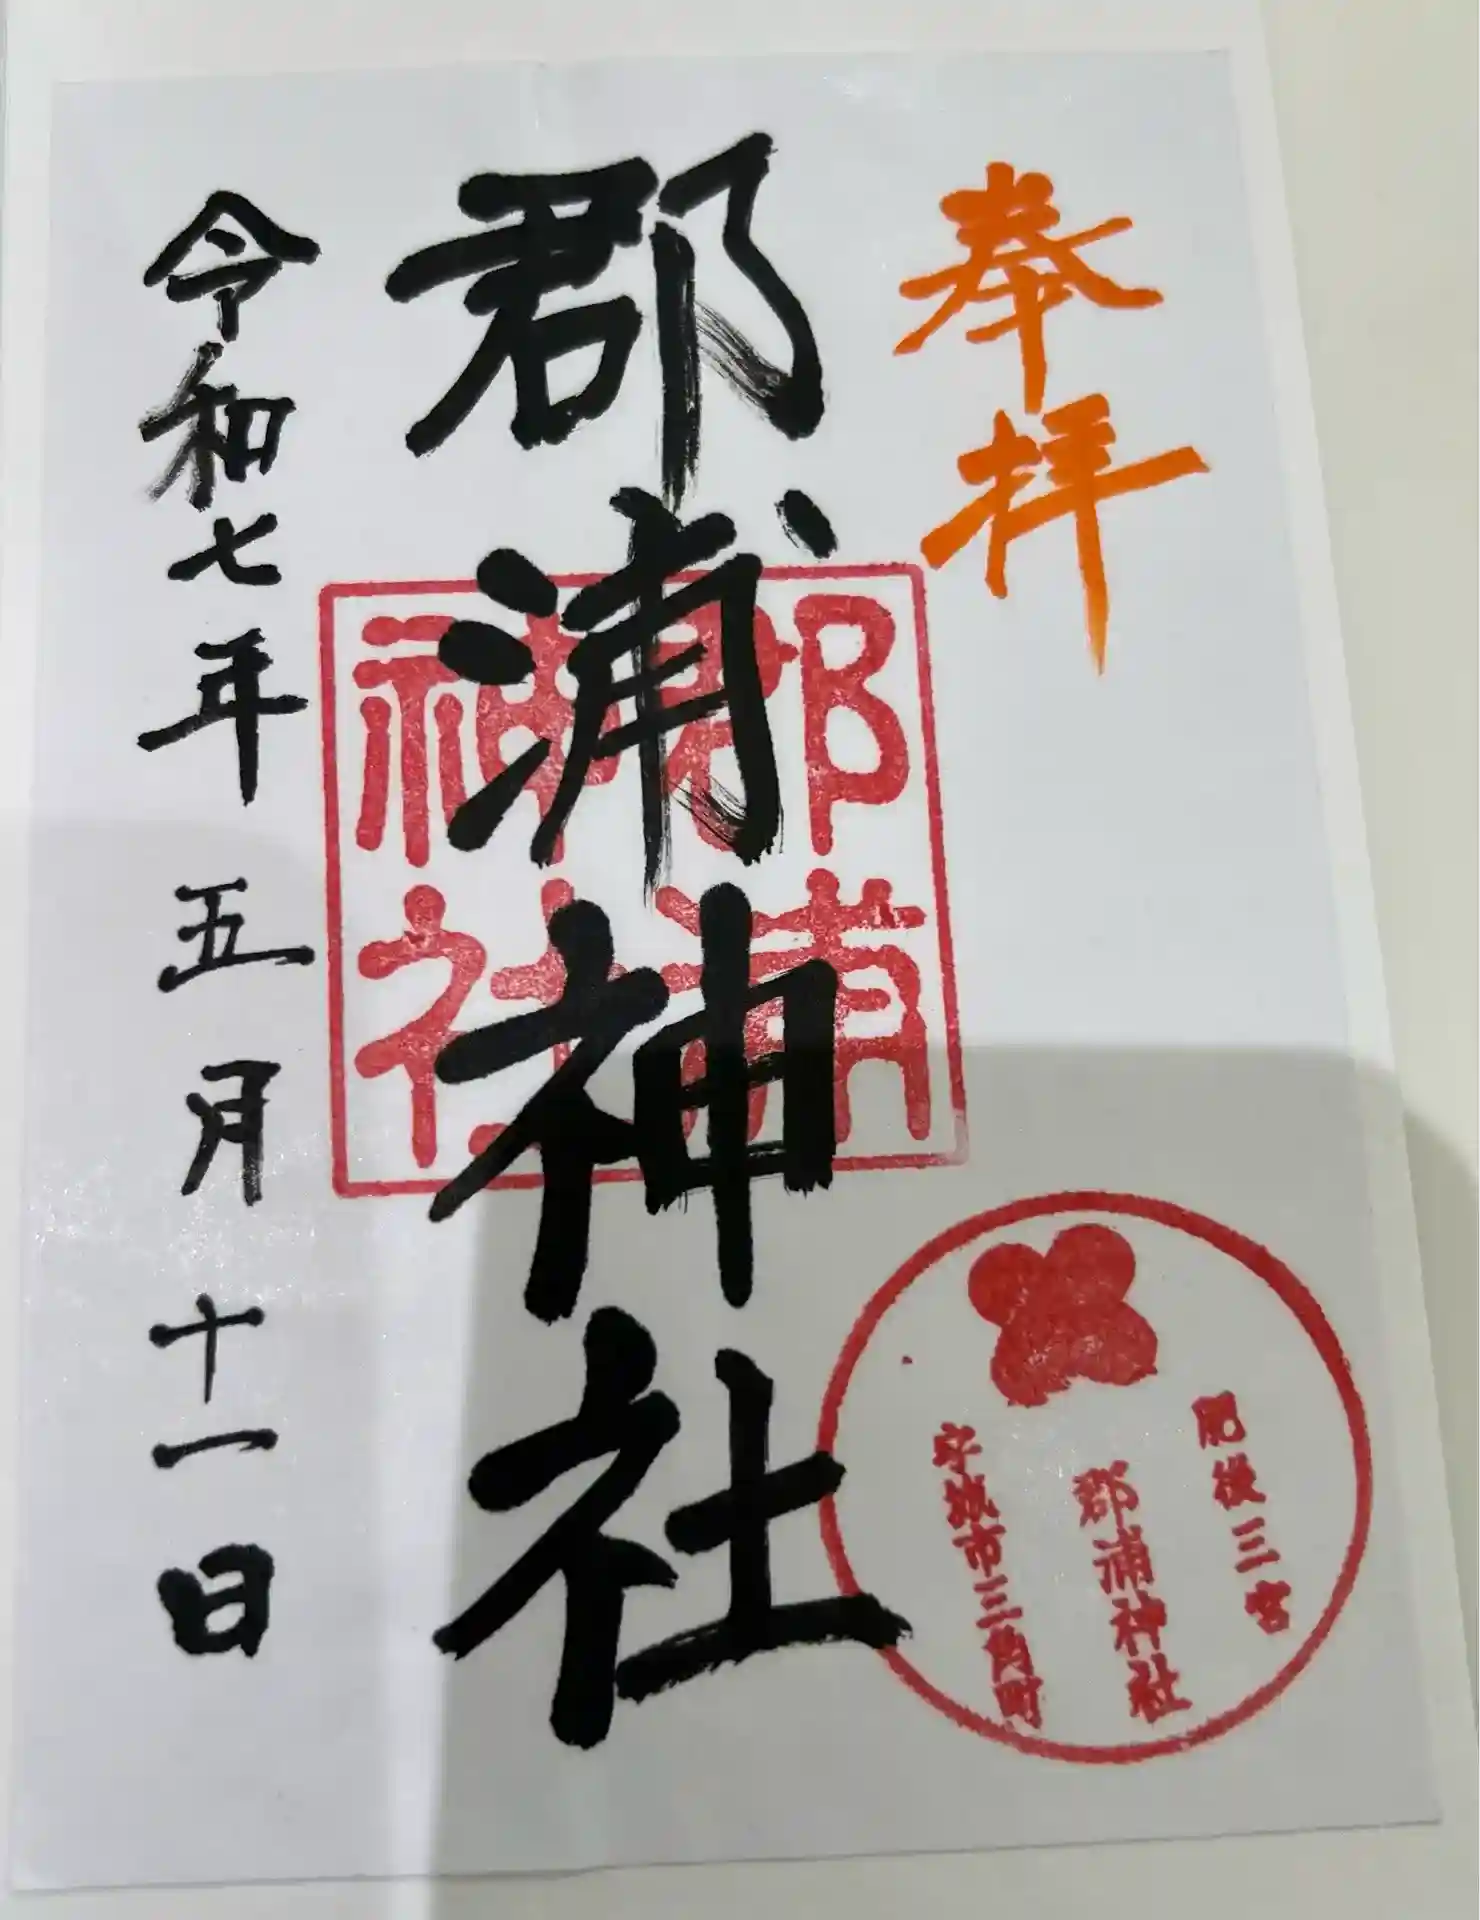 奉拝
郡浦神社
郡浦
神社
令和七年五月十一日
肥後三宮
郡浦神社
宇城市三角町